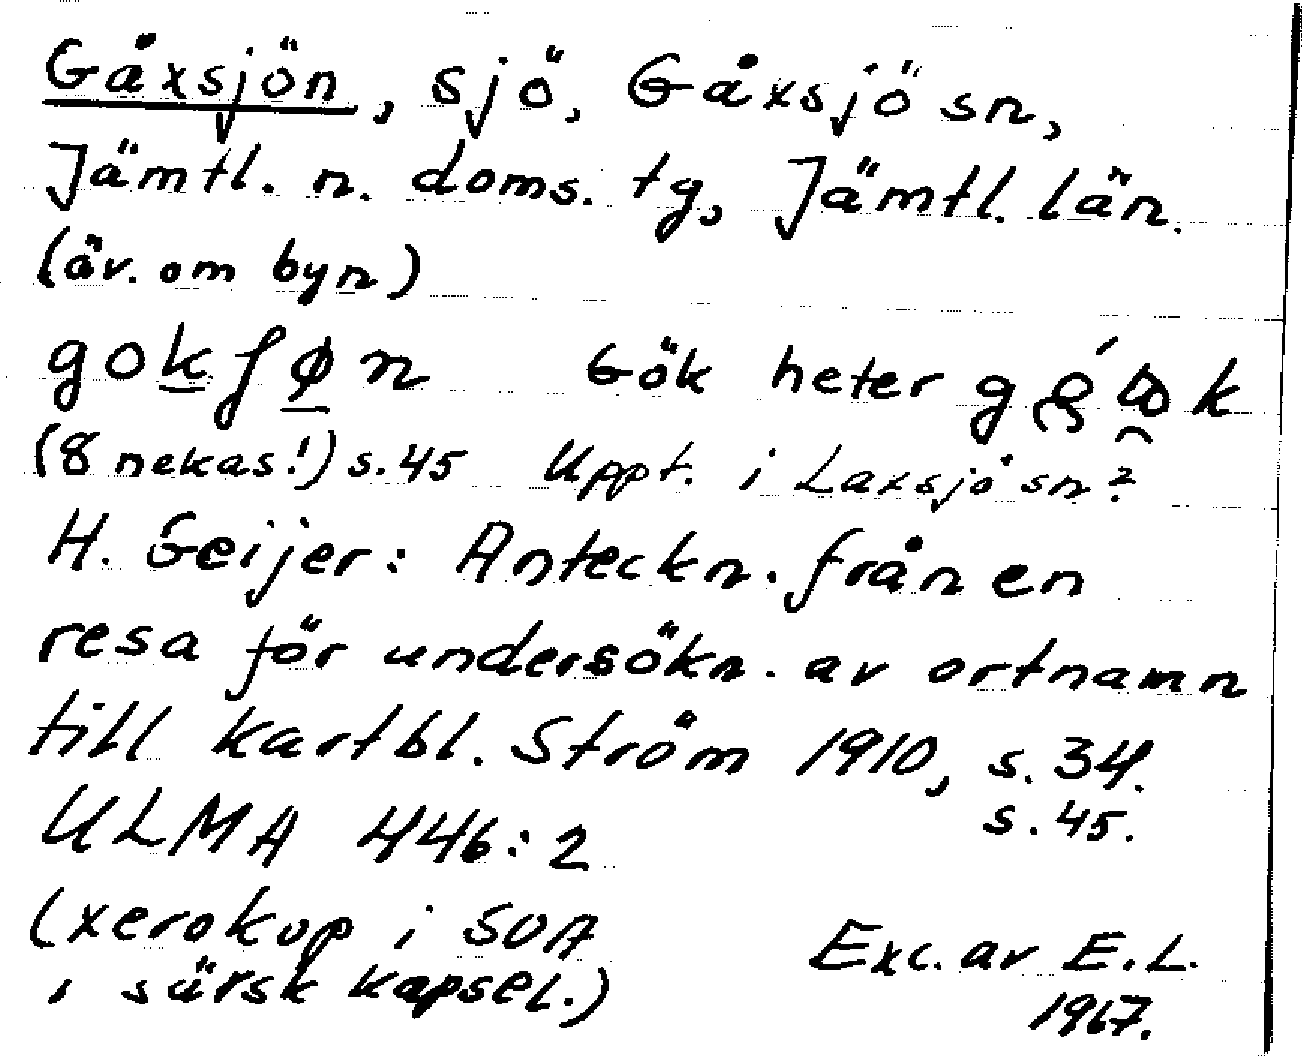 Gåxsjön, sjö, Gåxsjö sn,
Jämtl. n. doms. tg, Jämtl. län.
(äv. om byn)
gokʃøn Gök heter
(8 nekas!) s. 45 Uppt. i Laxsjö sn?
H. Geijer: Anteckn. från en
resa för undersökn. av ortnamn
till kartbl. Ström 1910, s. 34.
s. 45.
ULMA 446:2
(xerokop i SOA
i särsk kapsel.)
Exc. av E.L.
1967.